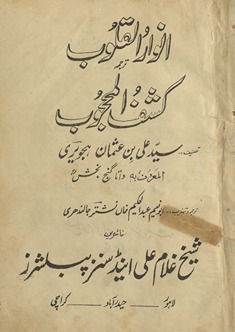 انوار القلوب
ترجمہ
کشف المحجوب
تصنیف:
سید علی بن عثمان ہجویری
المعروف بہ داتا گنج بخش
ترجمہ و تہذیب: ابو نعیم عبدالحکیم خاں نشتر جالندھری
ناشرین
شیخ غلام علی اینڈ سنز پبلشرز
لاہور حیدرآباد کراچی